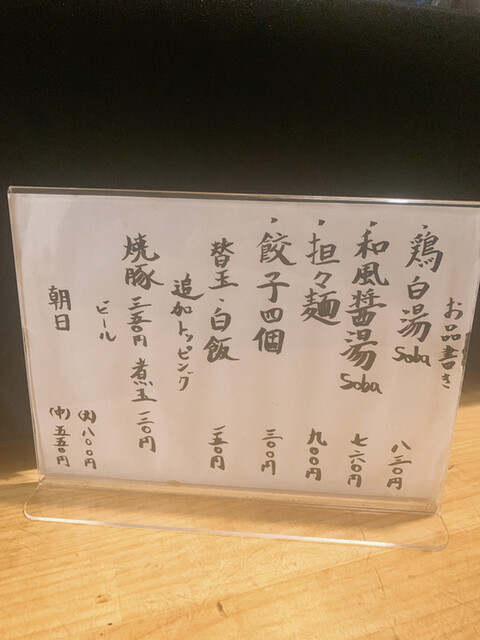 お品書き
・鶏白湯Soba 八三〇円
・和風醤湯Soba 七六〇円
・担々麺 九〇〇円
・餃子四個 三〇〇円
替玉・白飯 一五〇円
追加トッピング
焼豚 三五〇円 煮玉 一三〇円
ビール
(大)八〇〇円
朝日 (中)五五〇円